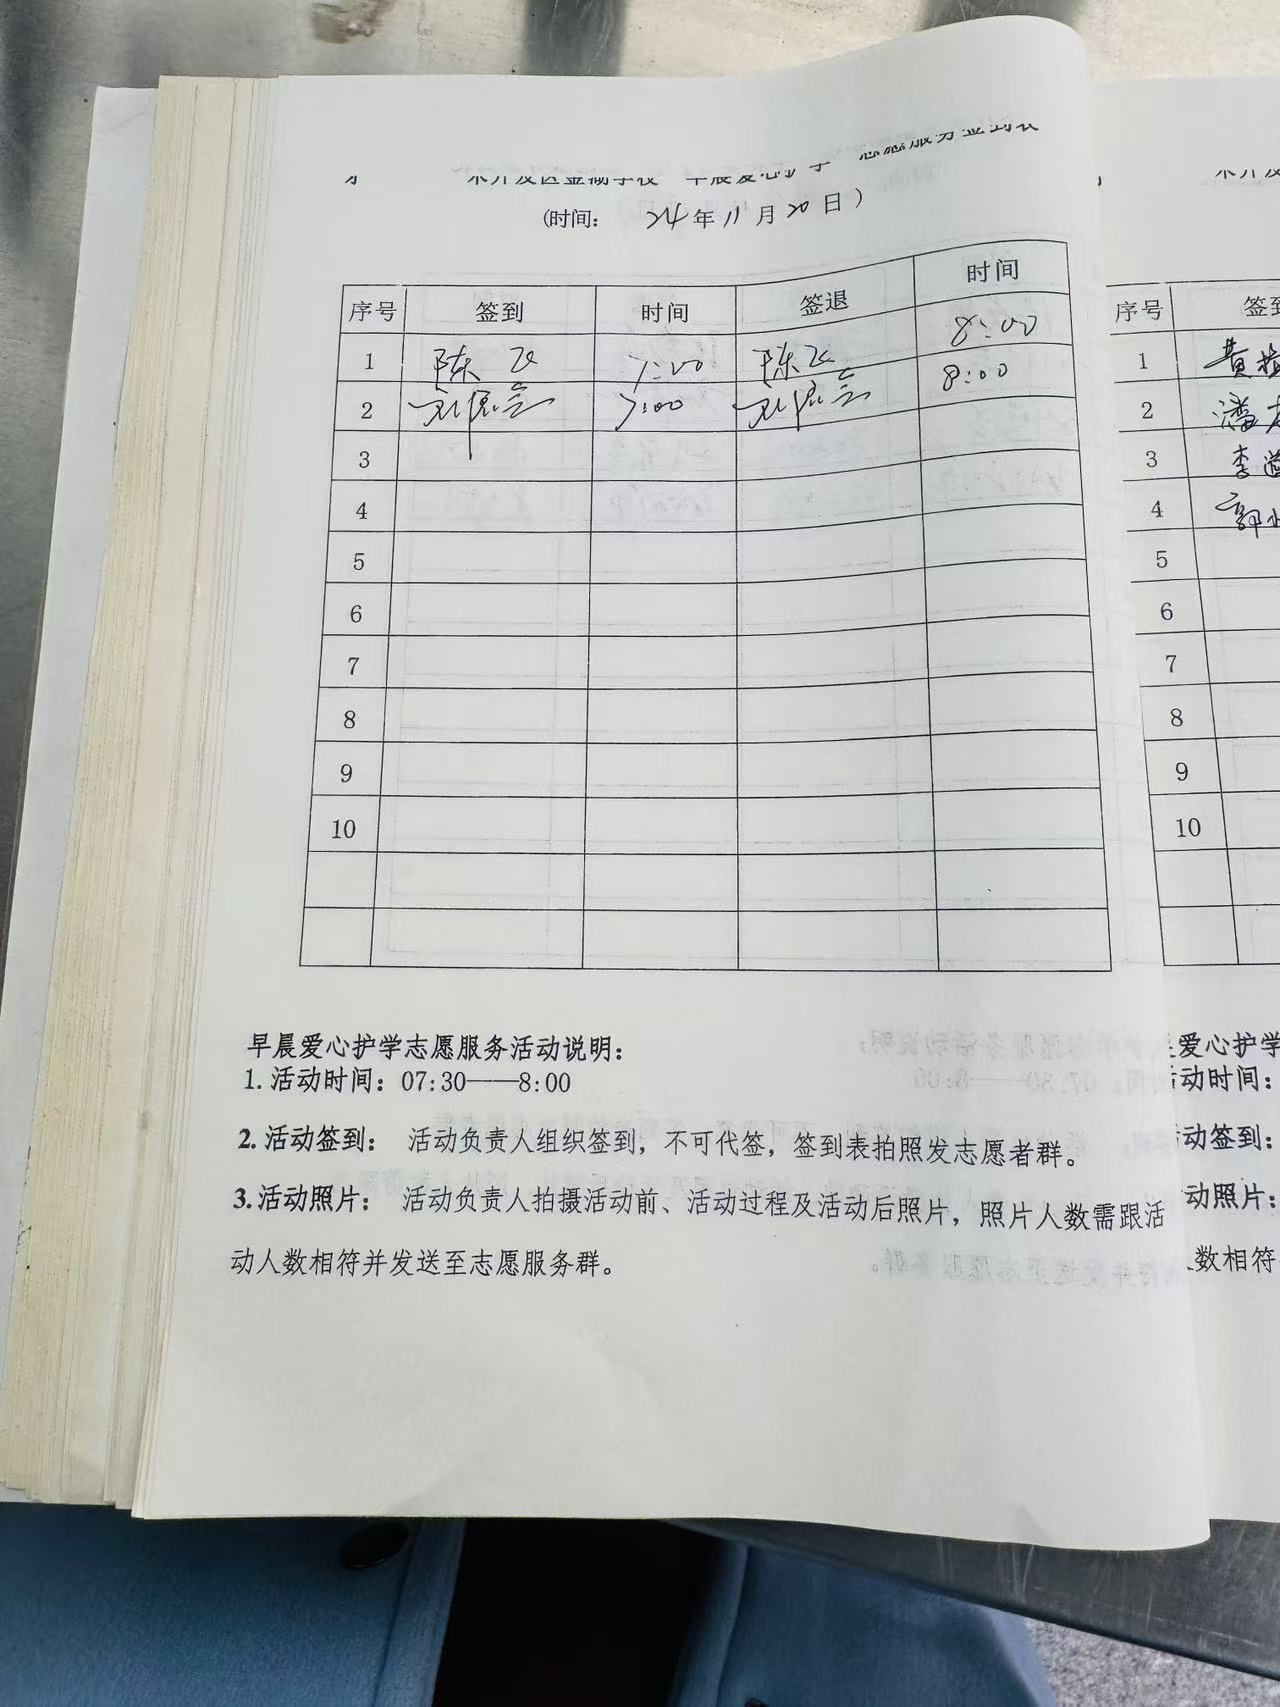 早晨爱心护学 志愿服务签到表
(时间: 24年11月20日)
序号 签到 时间 签退 时间
1 陈飞 7:00 陈飞 8:00
2 7:00 8:00
3
4
5
6
7
8
9
10
早晨爱心护学志愿服务活动说明:
1.活动时间: 07:30——8:00
2.活动签到: 活动负责人组织签到, 不可代签, 签到表拍照发志愿者群。
3.活动照片: 活动负责人拍摄活动前、活动过程及活动后照片, 照片人数需跟活
动人数相符并发送至志愿服务群。
序号 签到
1 黄
2 潘
3 李
4 郭
5
6
7
8
9
10
爱心护学
动时间:
动签到:
动照片:
数相符